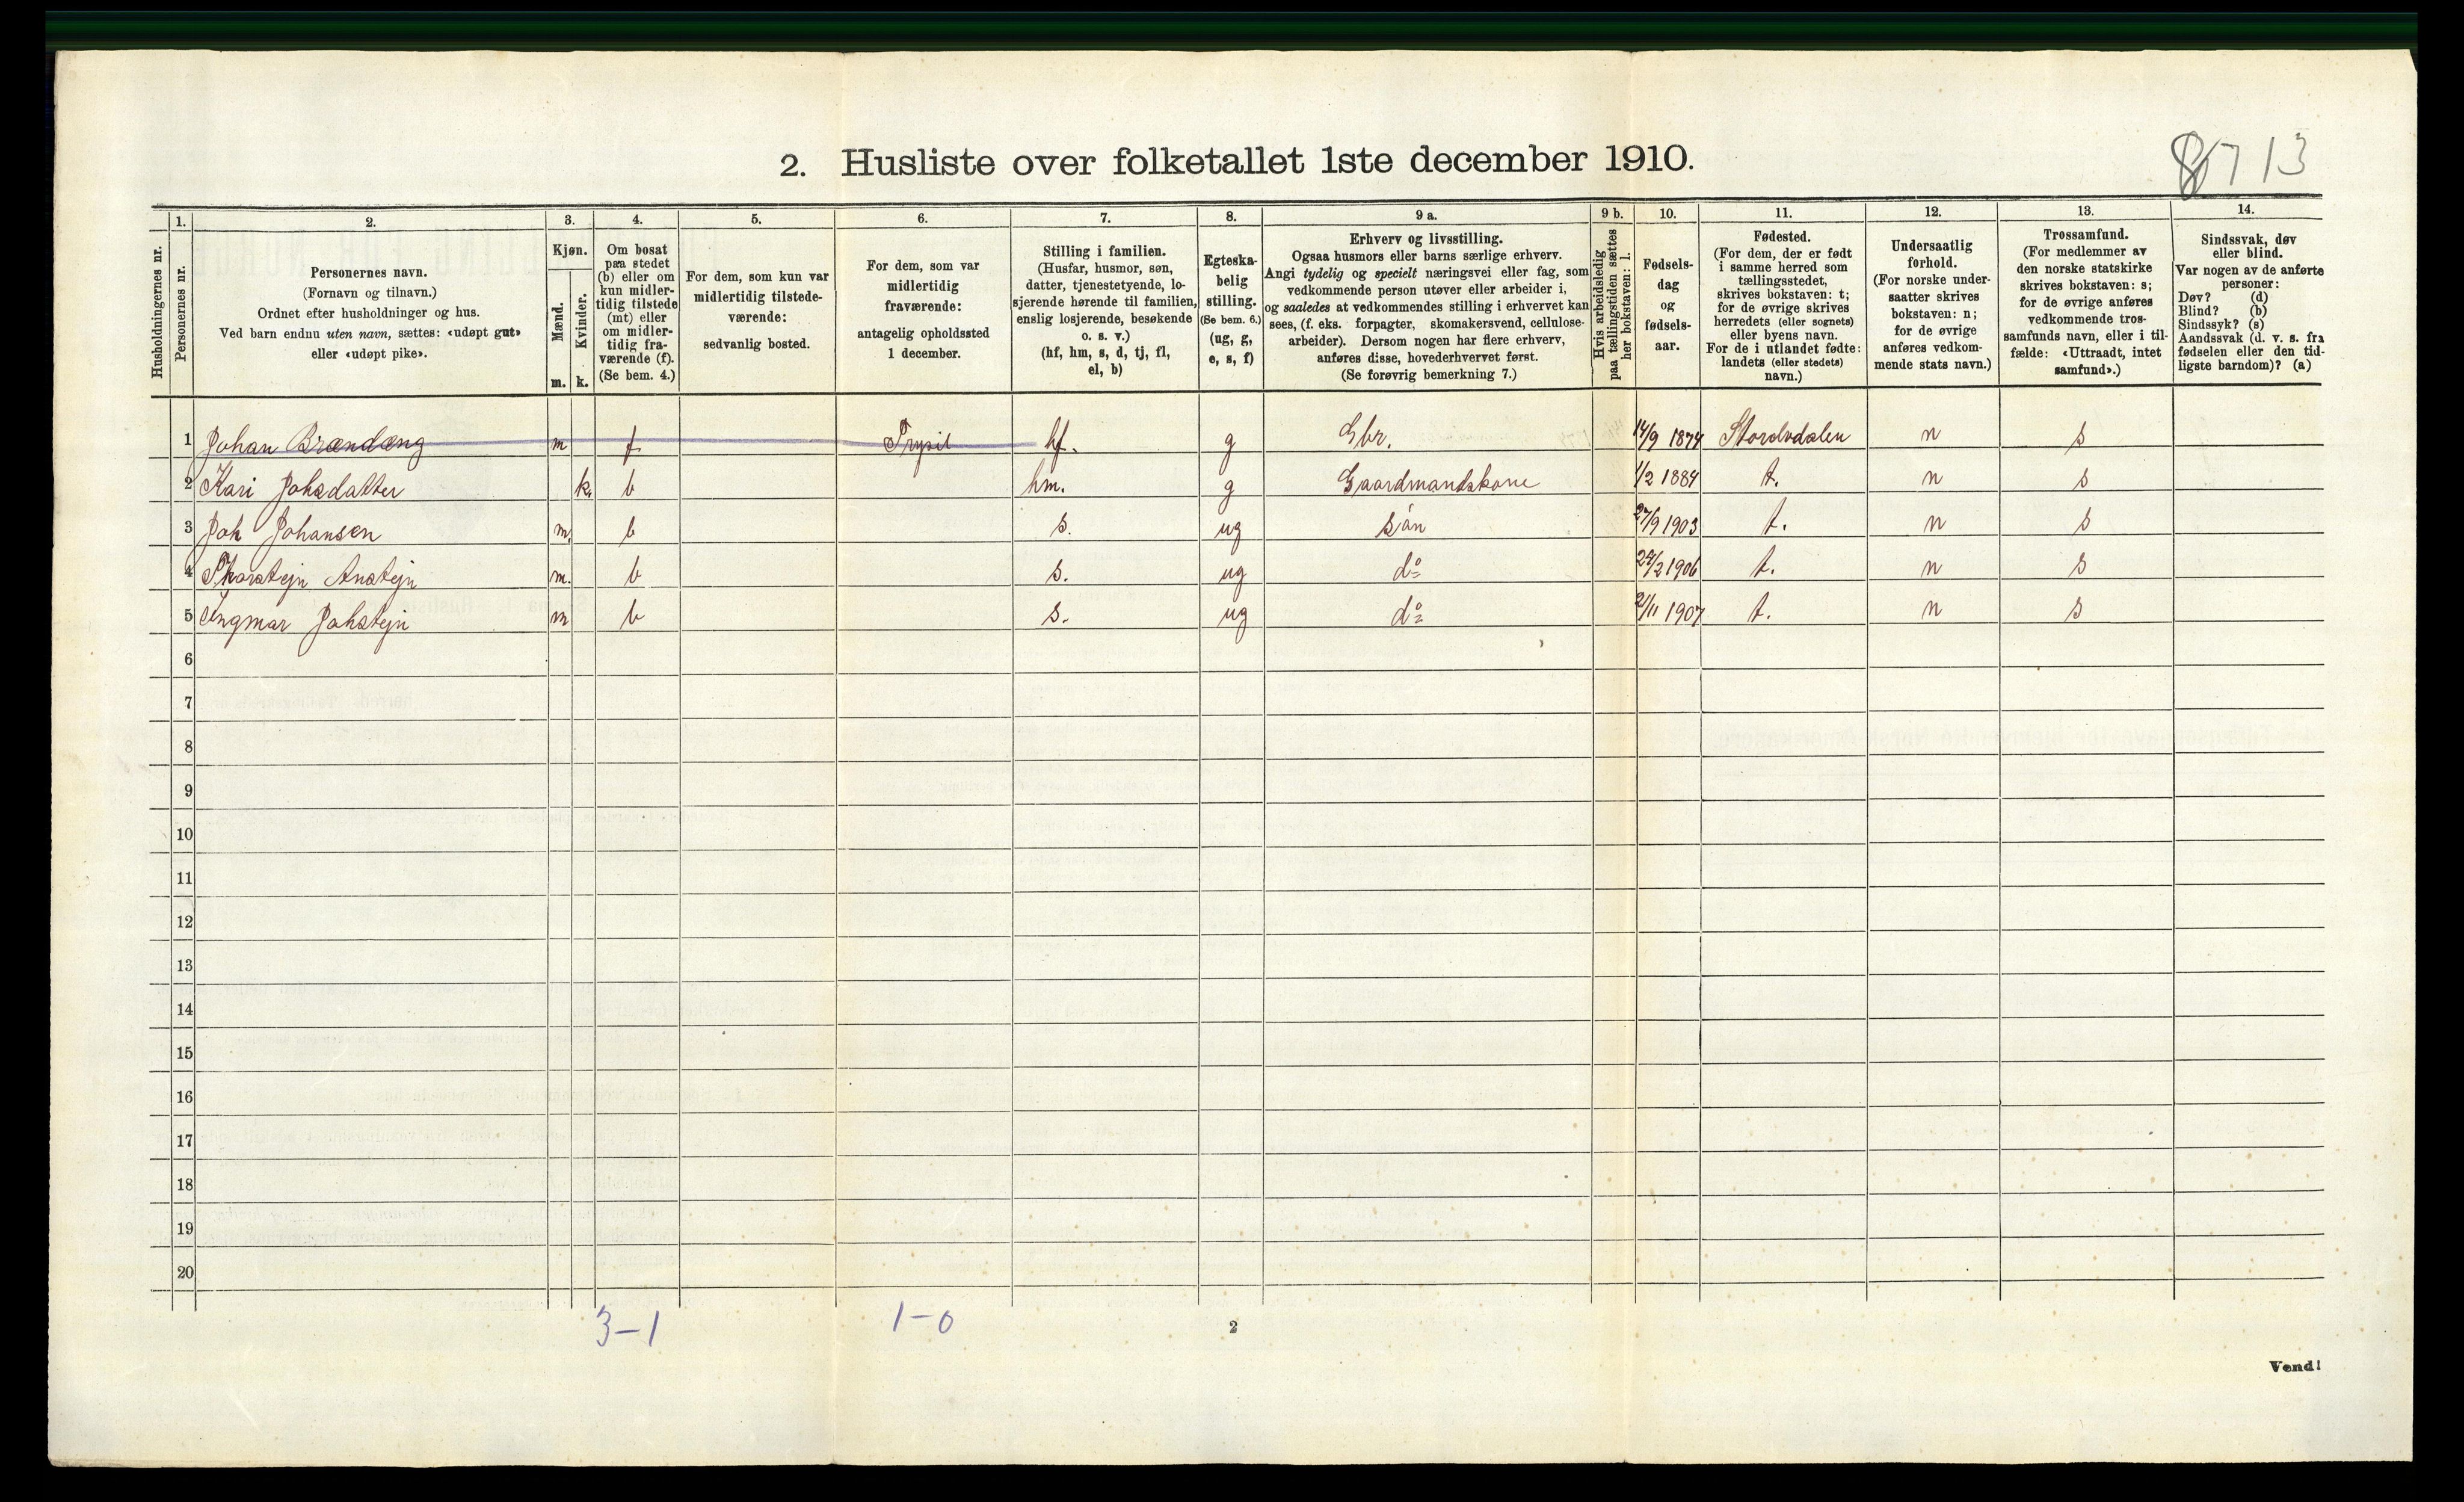 8713
2. Husliste over folketallet 1ste december 1910.
Husholdningernes nr.
1. Personernes nr.
2. Personernes navn.
(Fornavn og tilnavn.)
Ordnet efter husholdninger og hus.
Ved barn endnu uten navn, sættes: «udøpt gut»
eller «udøpt pike».
3. Kjøn.
Mænd. Kvinder.
m. k.
4. Om bosat
paa stedet
(b) eller om
kun midler-
tidig tilstede
(mt) eller
om midler-
tidig fra-
værende (f).
(Se bem. 4.)
5. For dem, som kun var
midlertidig tilstede-
værende:
sedvanlig bosted.
6. For dem, som var
midlertidig
fraværende:
antagelig opholdssted
1 december.
7. Stilling i familien.
(Husfar, husmor, søn,
datter, tjenestetyende, lo-
sjerende hørende til familien,
enslig losjerende, besøkende
o. s. v.)
(hf, hm, s, d, tj, fl,
el, b)
8. Egteska-
belig
stilling.
(Se bem. 6.)
(ug, g,
e, s, f)
9 a. Erhverv og livsstilling.
Ogsaa husmors eller barns særlige erhverv.
Angi tydelig og specielt næringsvei eller fag, som
vedkommende person utøver eller arbeider i,
og saaledes at vedkommendes stilling i erhvervet kan
sees, (f. eks. forpagter, skomakersvend, cellulose-
arbeider). Dersom nogen har flere erhverv,
anføres disse, hovederhvervet først.
(Se forøvrig bemerkning 7.)
9 b. Hvis arbeidsledig
paa tællingstiden sættes
her bokstaven: l.
10. Fødsels-
dag
og
fødsels-
aar.
11. Fødested.
(For dem, der er født
i samme herred som
tællingsstedet,
skrives bokstaven: t;
for de øvrige skrives
herredets (eller sognets)
eller byens navn.
For de i utlandet fødte:
landets (eller stedets)
navn.)
12. Undersaatlig
forhold.
(For norske under-
saatter skrives
bokstaven: n;
for de øvrige
anføres vedkom-
mende stats navn.)
13. Trossamfund.
(For medlemmer av
den norske statskirke
skrives bokstaven: s;
for de øvrige anføres
vedkommende tros-
samfunds navn, eller i til-
fælde: «Uttraadt, intet
samfund».)
14. Sindssvak, døv
eller blind.
Var nogen av de anførte
personer:
Døv? (d)
Blind? (b)
Sindssyk? (s)
Aandssvak (d. v. s. fra
fødselen eller den tid-
ligste barndom)? (a)
1 Johan Brændæng m f Trysil hf. g Gbr. 14/9 1874 n s
2 Kari Johsdatter k. b hm. g Gaardmandskone 1/2 1884 t. n s
3 Joh Johansen m. b s. ug sön 27/9 1903 t. n s
4 Thorstejn Anstejn m. b s. ug do 24/2 1906 t. n s
5 Ingmar Johstejn m b s. ug do 2/11 1907 t. n s
6
7
8
9
10
11
12
13
14
15
16
17
18
19
20
3-1 1-0
2
Vend!